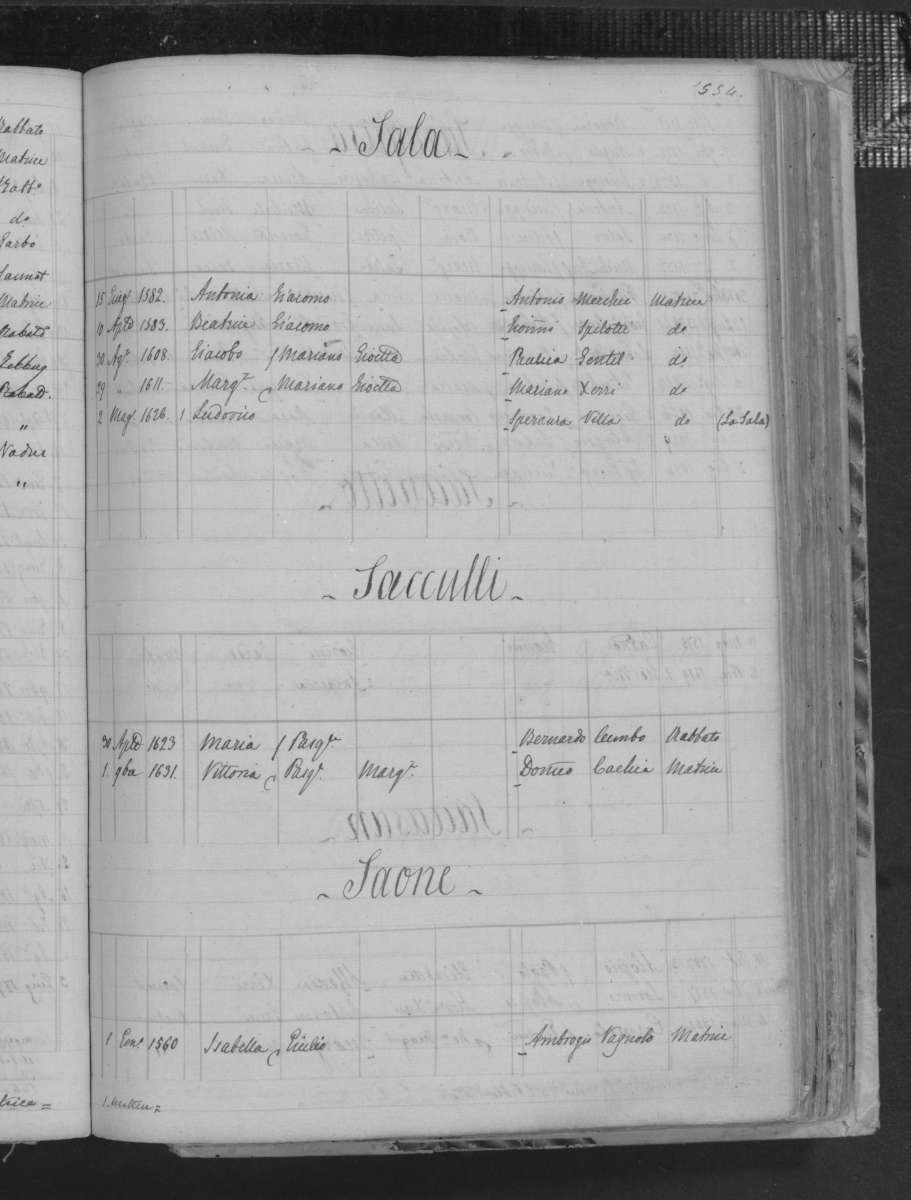 554.
Rabbato
Matrice
Rabb.º
do
Garbo
Matrice
Rabatº
Zebbug
Rabatº.
"
Nadur
"
- Sala -
15 Giugº 1582. Antonia Giacomo Antonio Merchie Matrice
10 Aple 1583. Beatrice Giacomo Spilotti do
30 Agº 1608. Giacobo Mariano Gentil do
29 " 1611. Margta. Mariano Mariano Xerri do
2 Magº 1626. 1 Ludovico Speranza Villa do (La Sala)
- Sacculli -
30 Aple 1623 Maria Pasqe Bernardo Cumbo Rabbato
1. 9bre 1631. Vittoria Pasqe. Margta. Domco Cachia Matrice
- Saone -
1 Genº 1560 Isabella Giulio Ambrogio Vagnolo Matrice